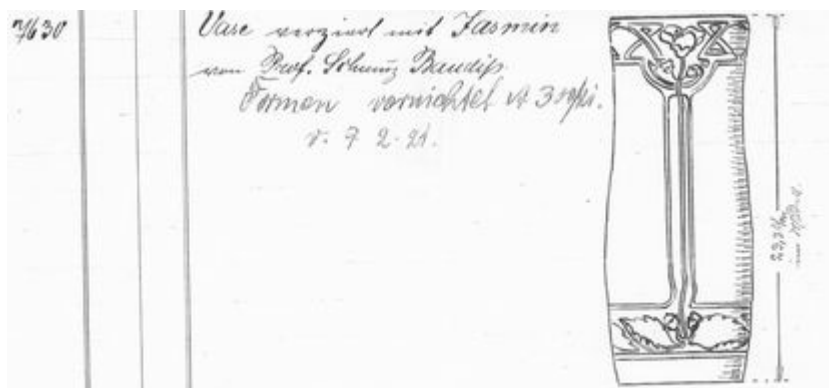 630
Vase verziert mit Jasmin
von Prof. Schmuz Baudiß
Formen vernichtet
v. 7 2. 21.
23,3